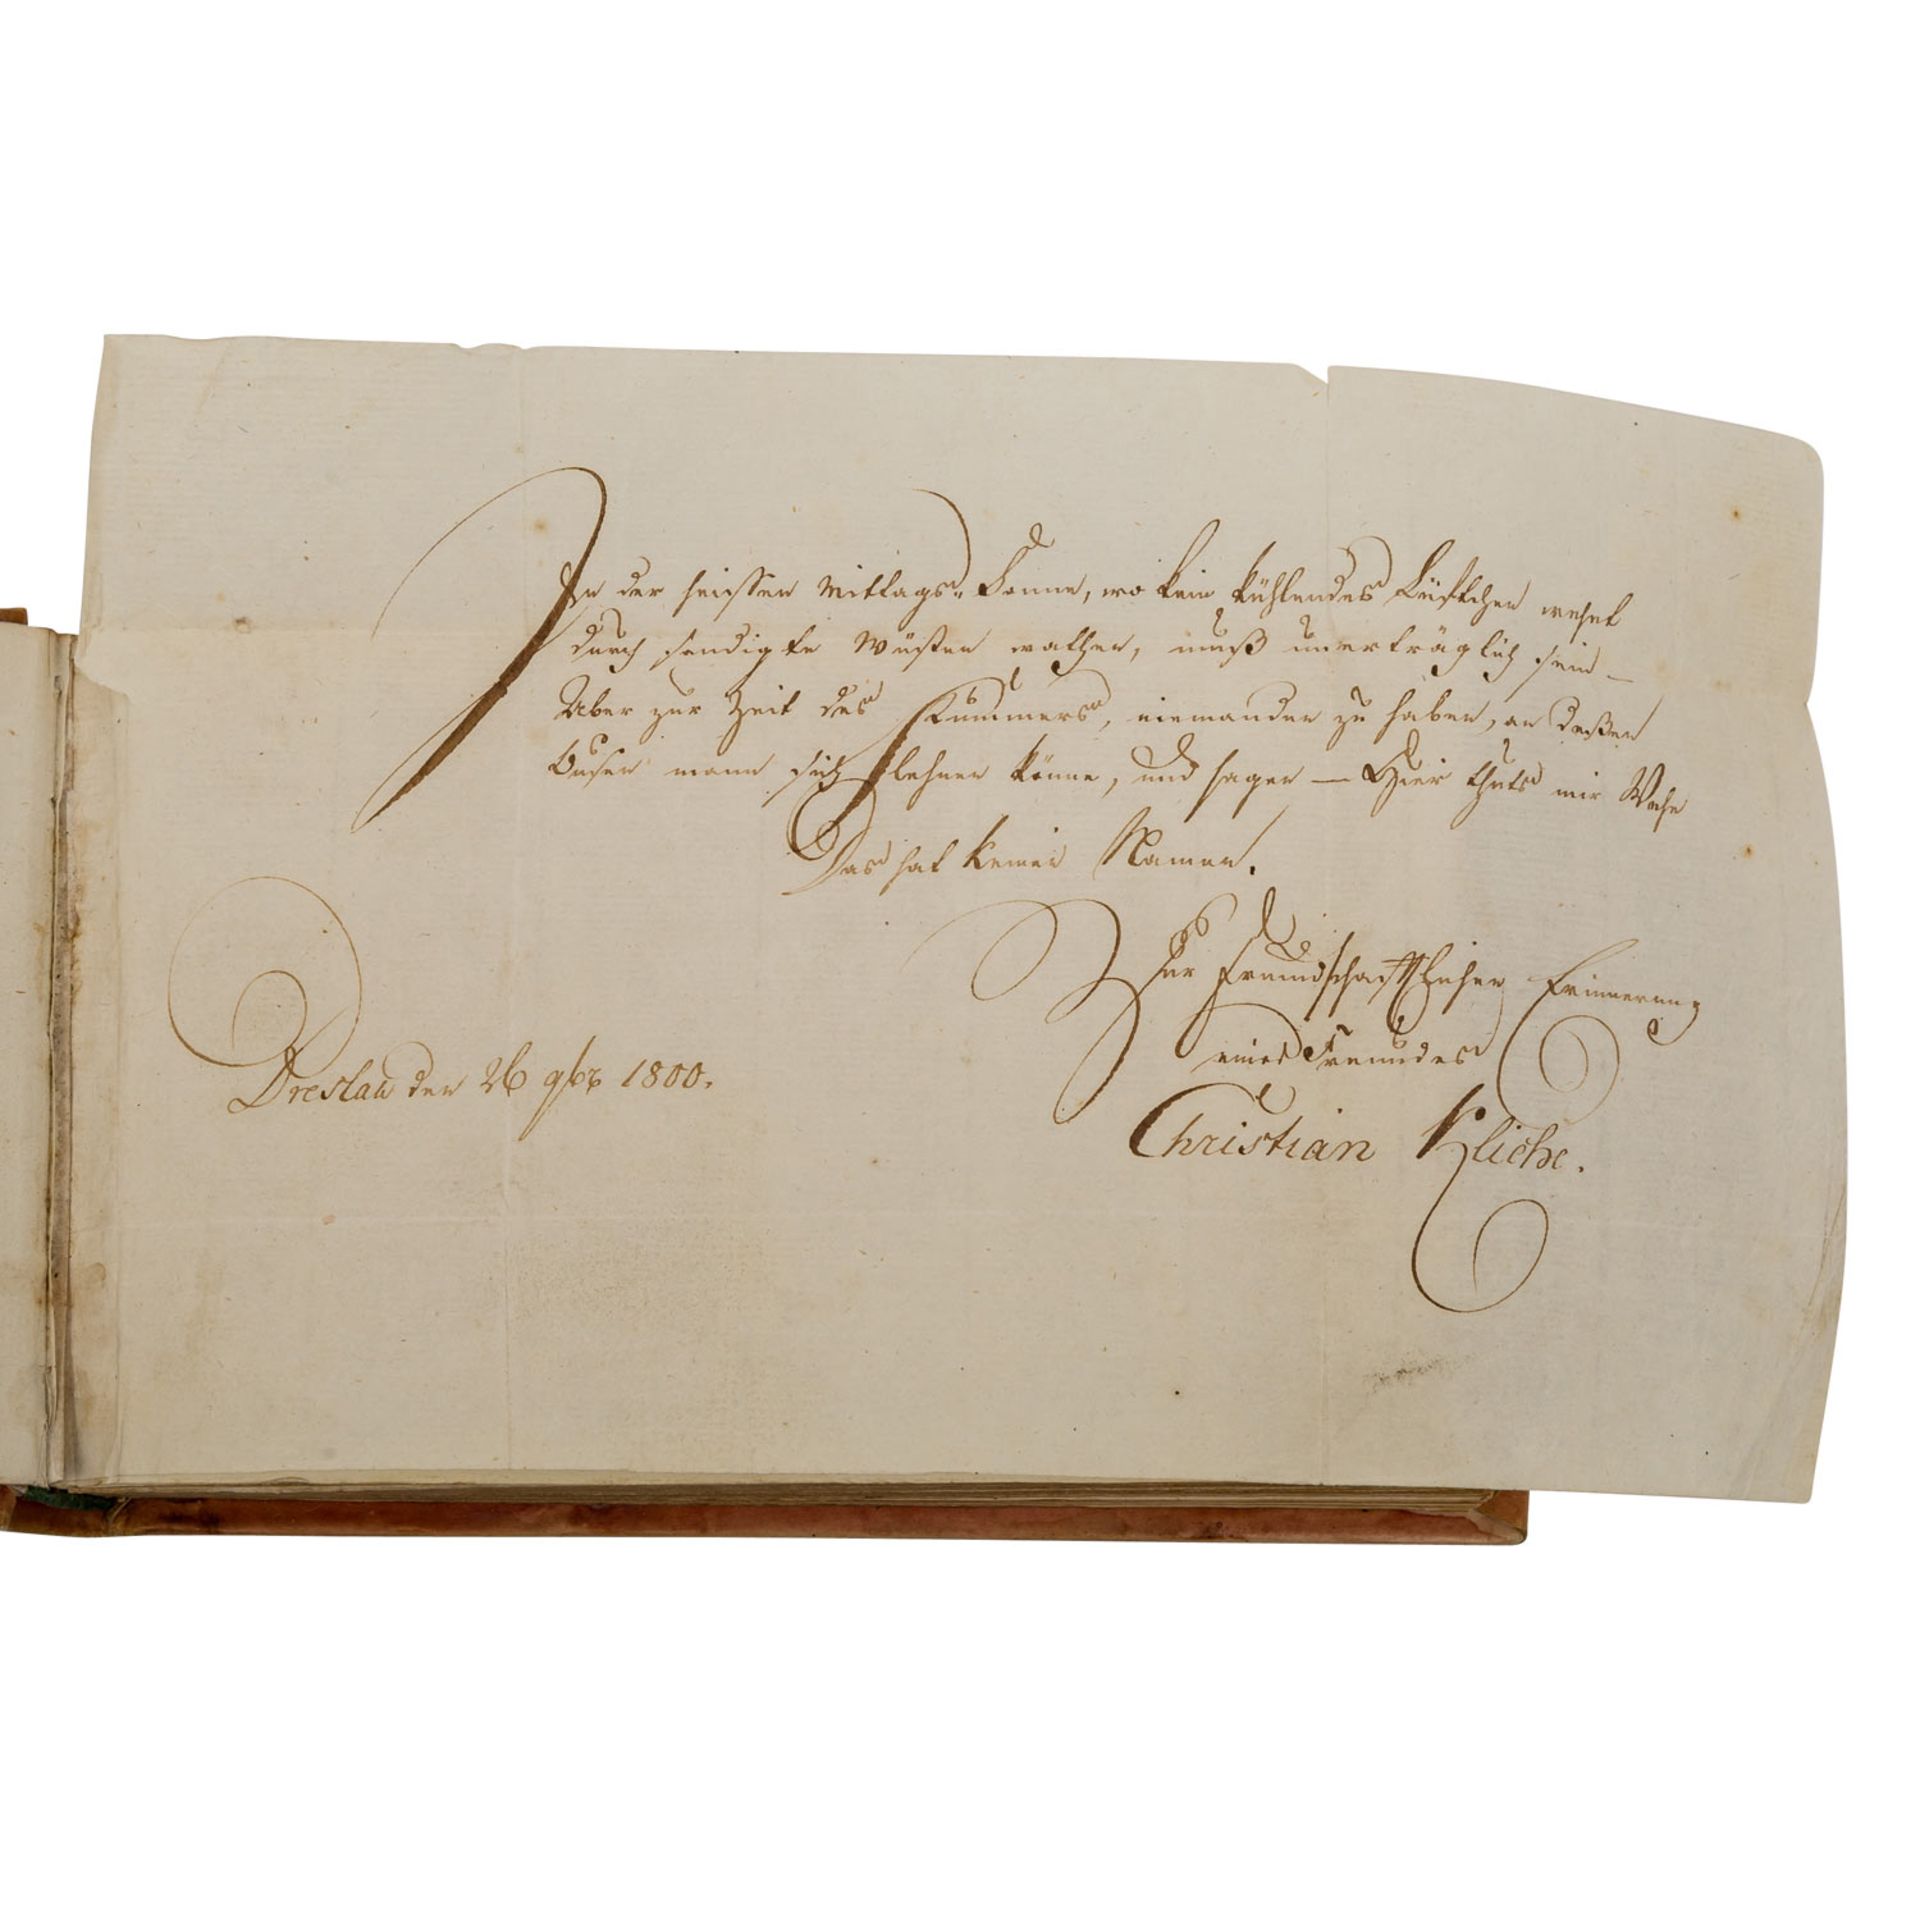 In der heissen Mittags-Sonne, wo kein kühlendes Lüftchen wehet
durch sandigte Wüsten wathen, muß unerträglich sein –
Aber zur Zeit des Kummers, niemanden zu haben, an deßen
Busen mann sich lehnen könne, und sagen — Hier thuts mir Wehe
Das hat keinen Namen.
Zur Freundschaftlichen Erinnerung
eines Freundes
Breslau den 26 9br 1800.
Christian Kliche.